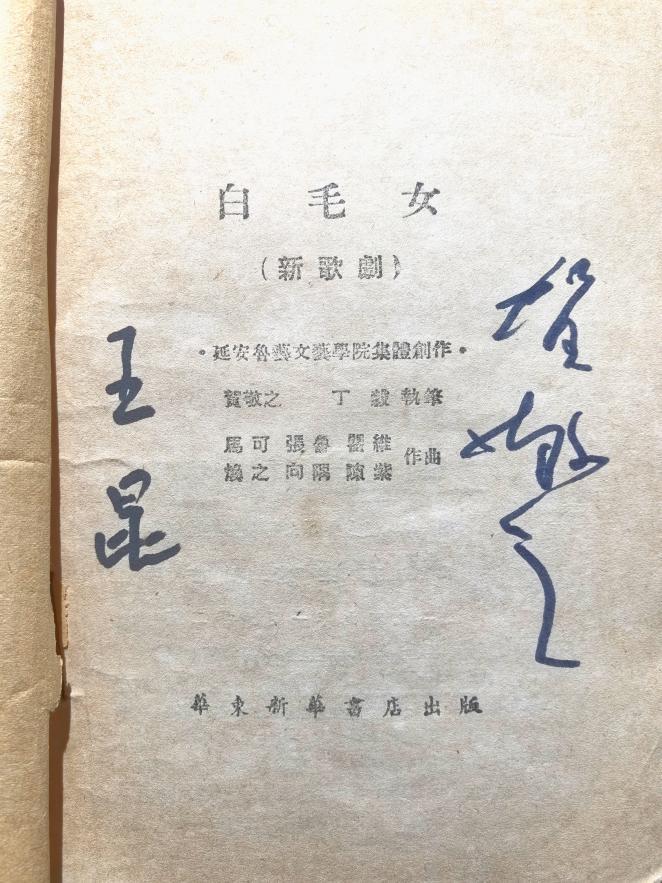 白毛女
(新歌劇)
•延安魯藝文藝學院集體創作•
賀敬之 丁毅 執筆
馬可 張魯 瞿維
煥之 向隅 陳紫
作曲
華東新華書店出版
王昆
賀敬之